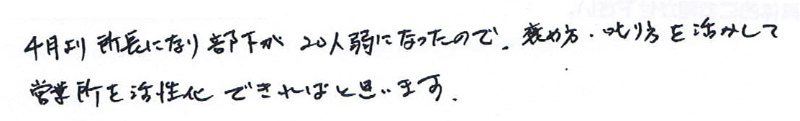 4月より所長になり部下が20人弱になったので、褒め方・叱り方を活かして
営業所を活性化できればと思います.